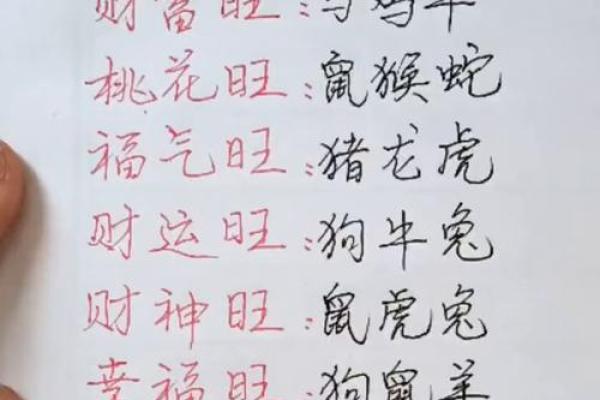 财富旺:马鸡牛
桃花旺:鼠猴蛇
福气旺:猪龙虎
财运旺:狗牛兔
财神旺:鼠虎兔
幸福旺:狗鼠羊